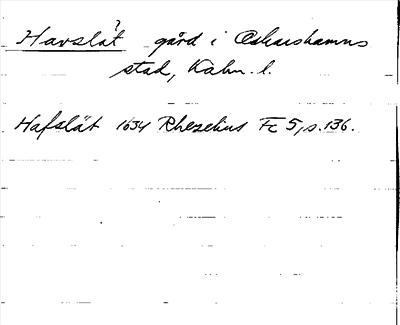 Havslät ? gård i Oskarshamns
stad, Kalm. l.
Hafslät 1634 Rhezelius Fc 5, s. 136.